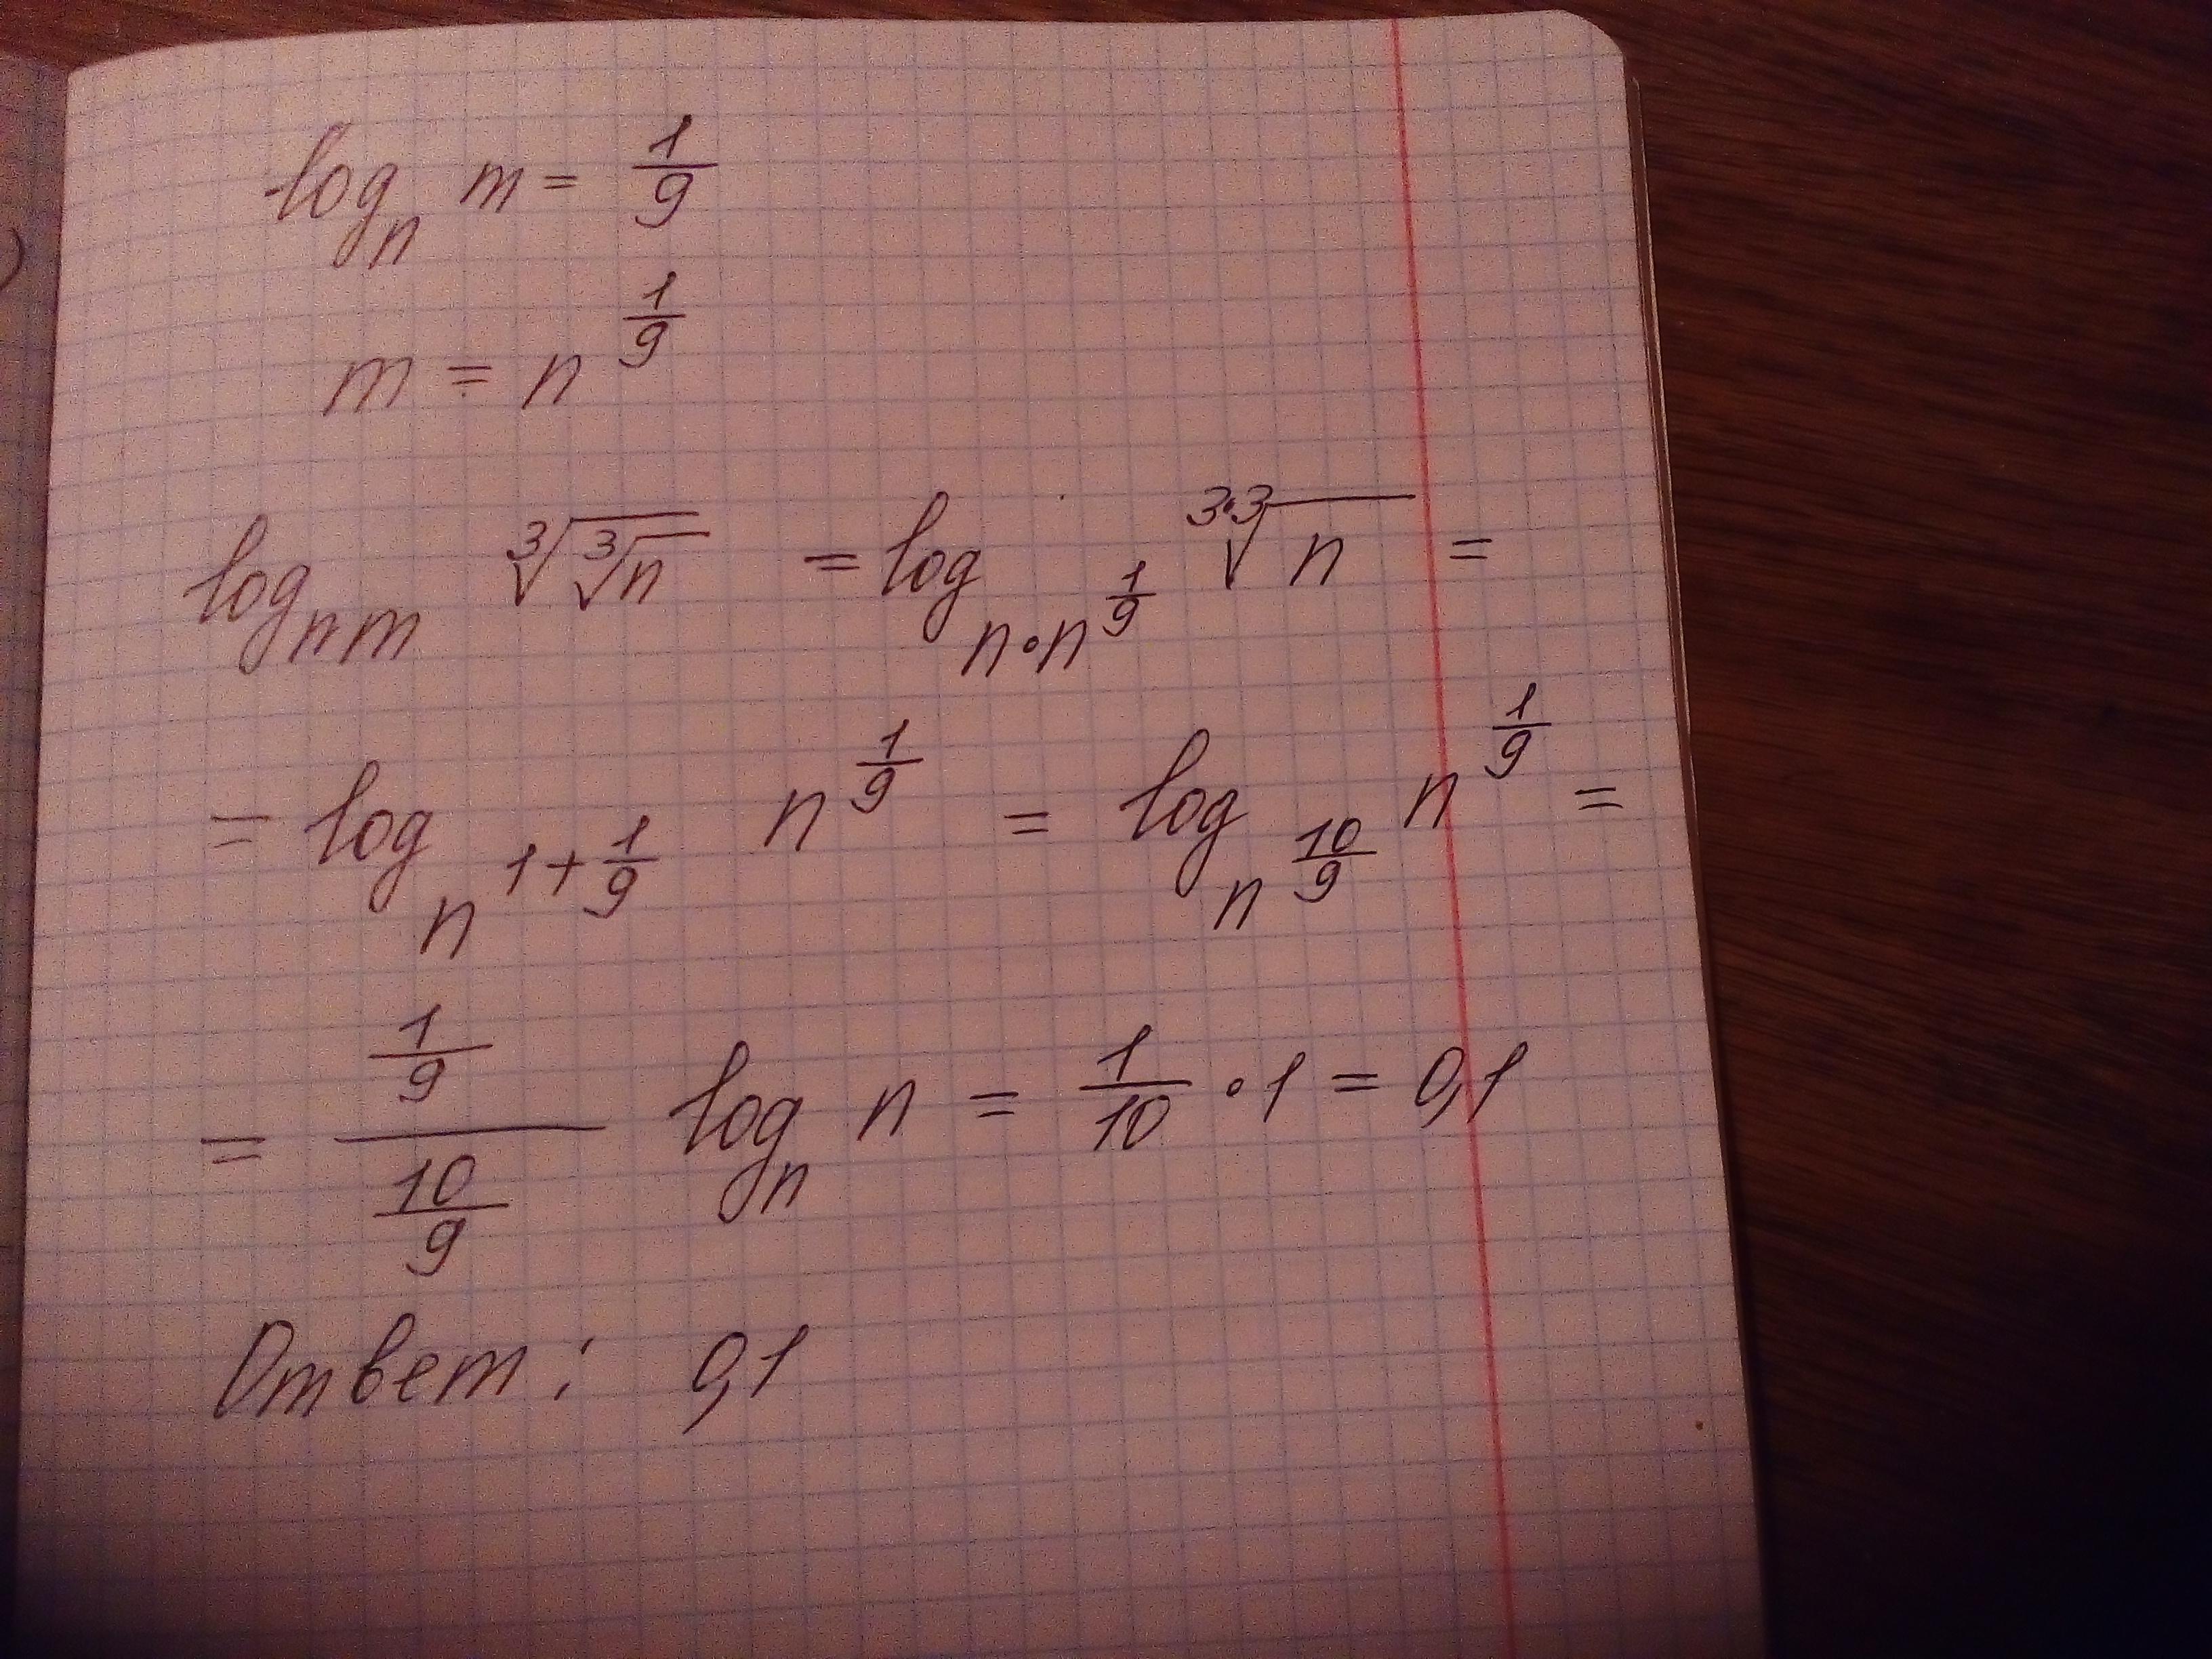 log_n m = 1/9
m = n^(1/9)
log_(nm) ∛(∛n) = log_(n•n^(1/9)) ^(3·3)√n =
= log_(n^(1+1/9)) n^(1/9) = log_(n^(10/9)) n^(1/9) =
= (1/9)/(10/9) log_n n = 1/10 • 1 = 0,1
Ответ: 0,1